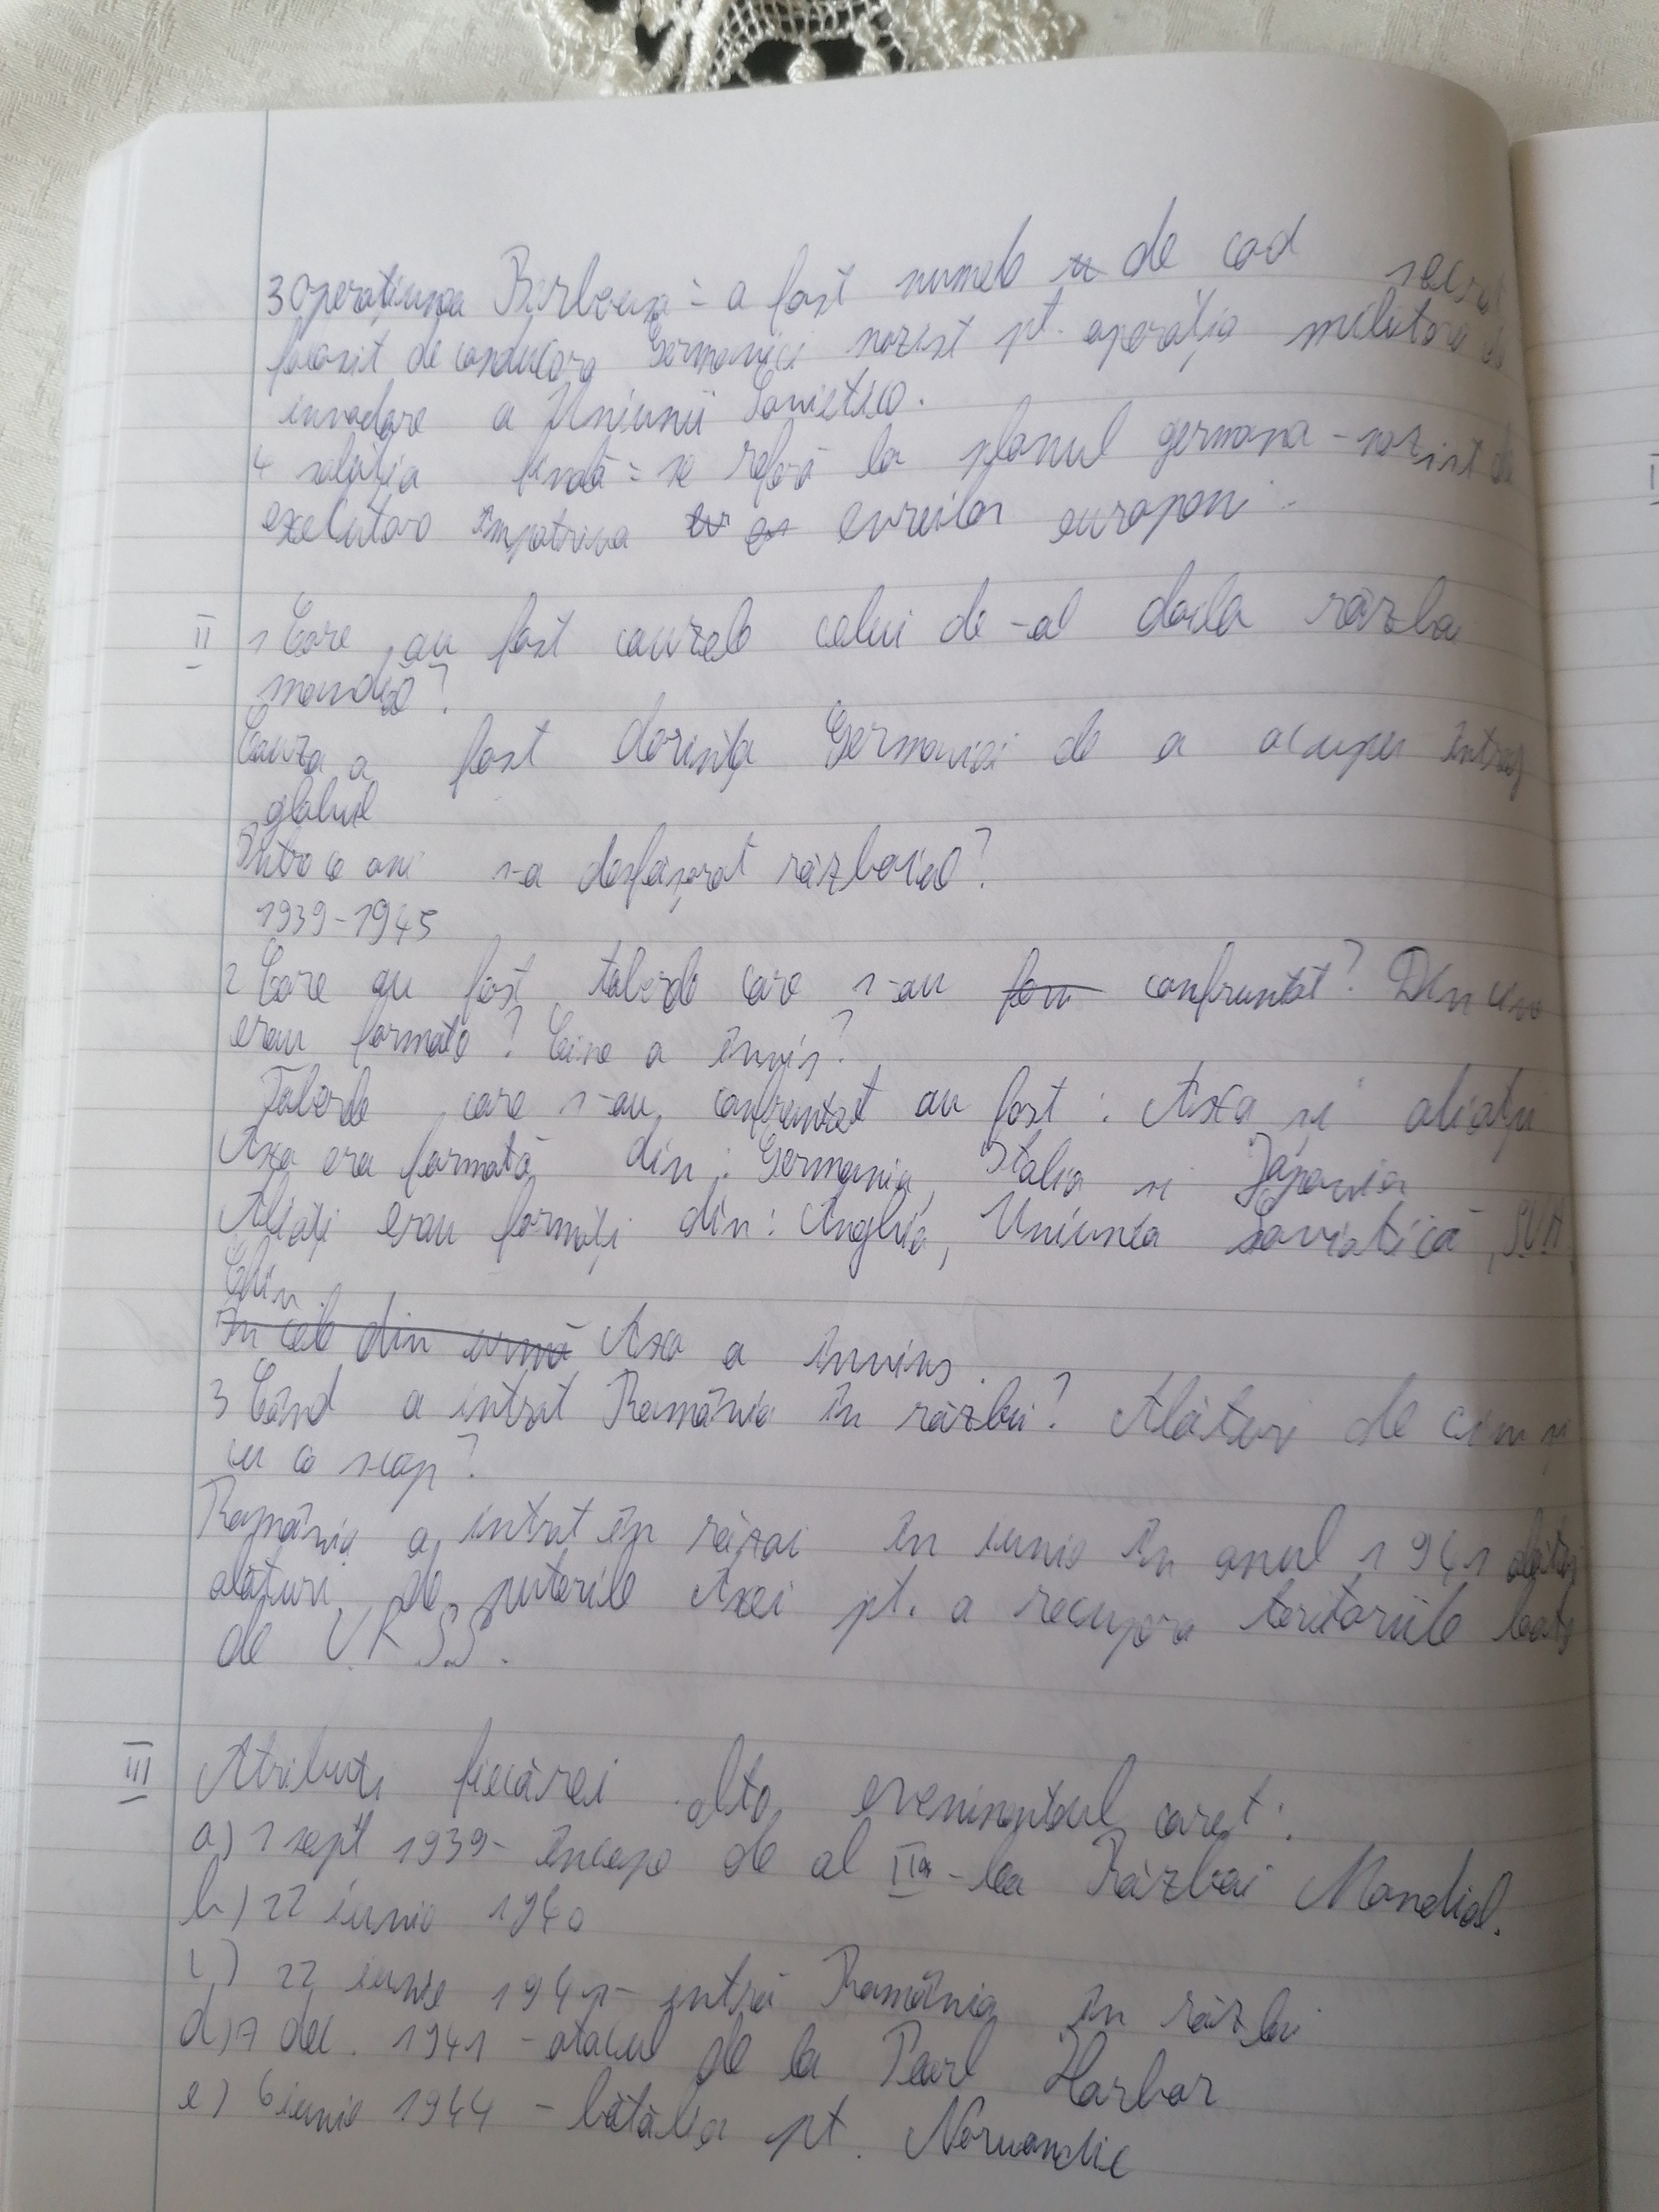 3 Operațiunea Barbarosa = a fost numele de cod secret
folosit de conducerea Germaniei nazist pt. operația militară de
invadare a Uniunii Sovietice.
4 soluția finală = se referă la planul germana - nazist de
executare împotriva evreilor europeni.
II 1 Care au fost cauzele celui de-al doilea războ
mondial?
Cauza a fost dorința Germaniei de a ocupa întreg
globul
Într ce ani s-a desfășurat războiul?
1939-1945
2 Care au fost taberele care s-au confruntat? Din cine
erau formate? Cine a învis?
Taberele care s-au confruntat au fost: Axa și aliații
Axa era formată din: Germania, Italia și Japonia
Aliați erau formați din: Anglia, Uniunea Sovietică, SUA,
Chin.
În cele din urmă Axa a învins.
3 Când a intrat România în război? Alături de cine și
cu ce scop?
România a intrat în răzoi în iunie în anul 1941 alături
alături de puterile Axei pt. a recupera teritoriile luate
de U.R.S.S.
III Atribuiți fiecărei date evenimentul corect:
a) 1 sept 1939 - începe de al II a-lea Război Mondial.
b) 22 iunie 1940
c) 22 iunie 1941 - intră România în război
d) 7 dec. 1941 - atacul de la Pearl Harbor
e) 6 iunie 1944 - bătălia pt. Normandie